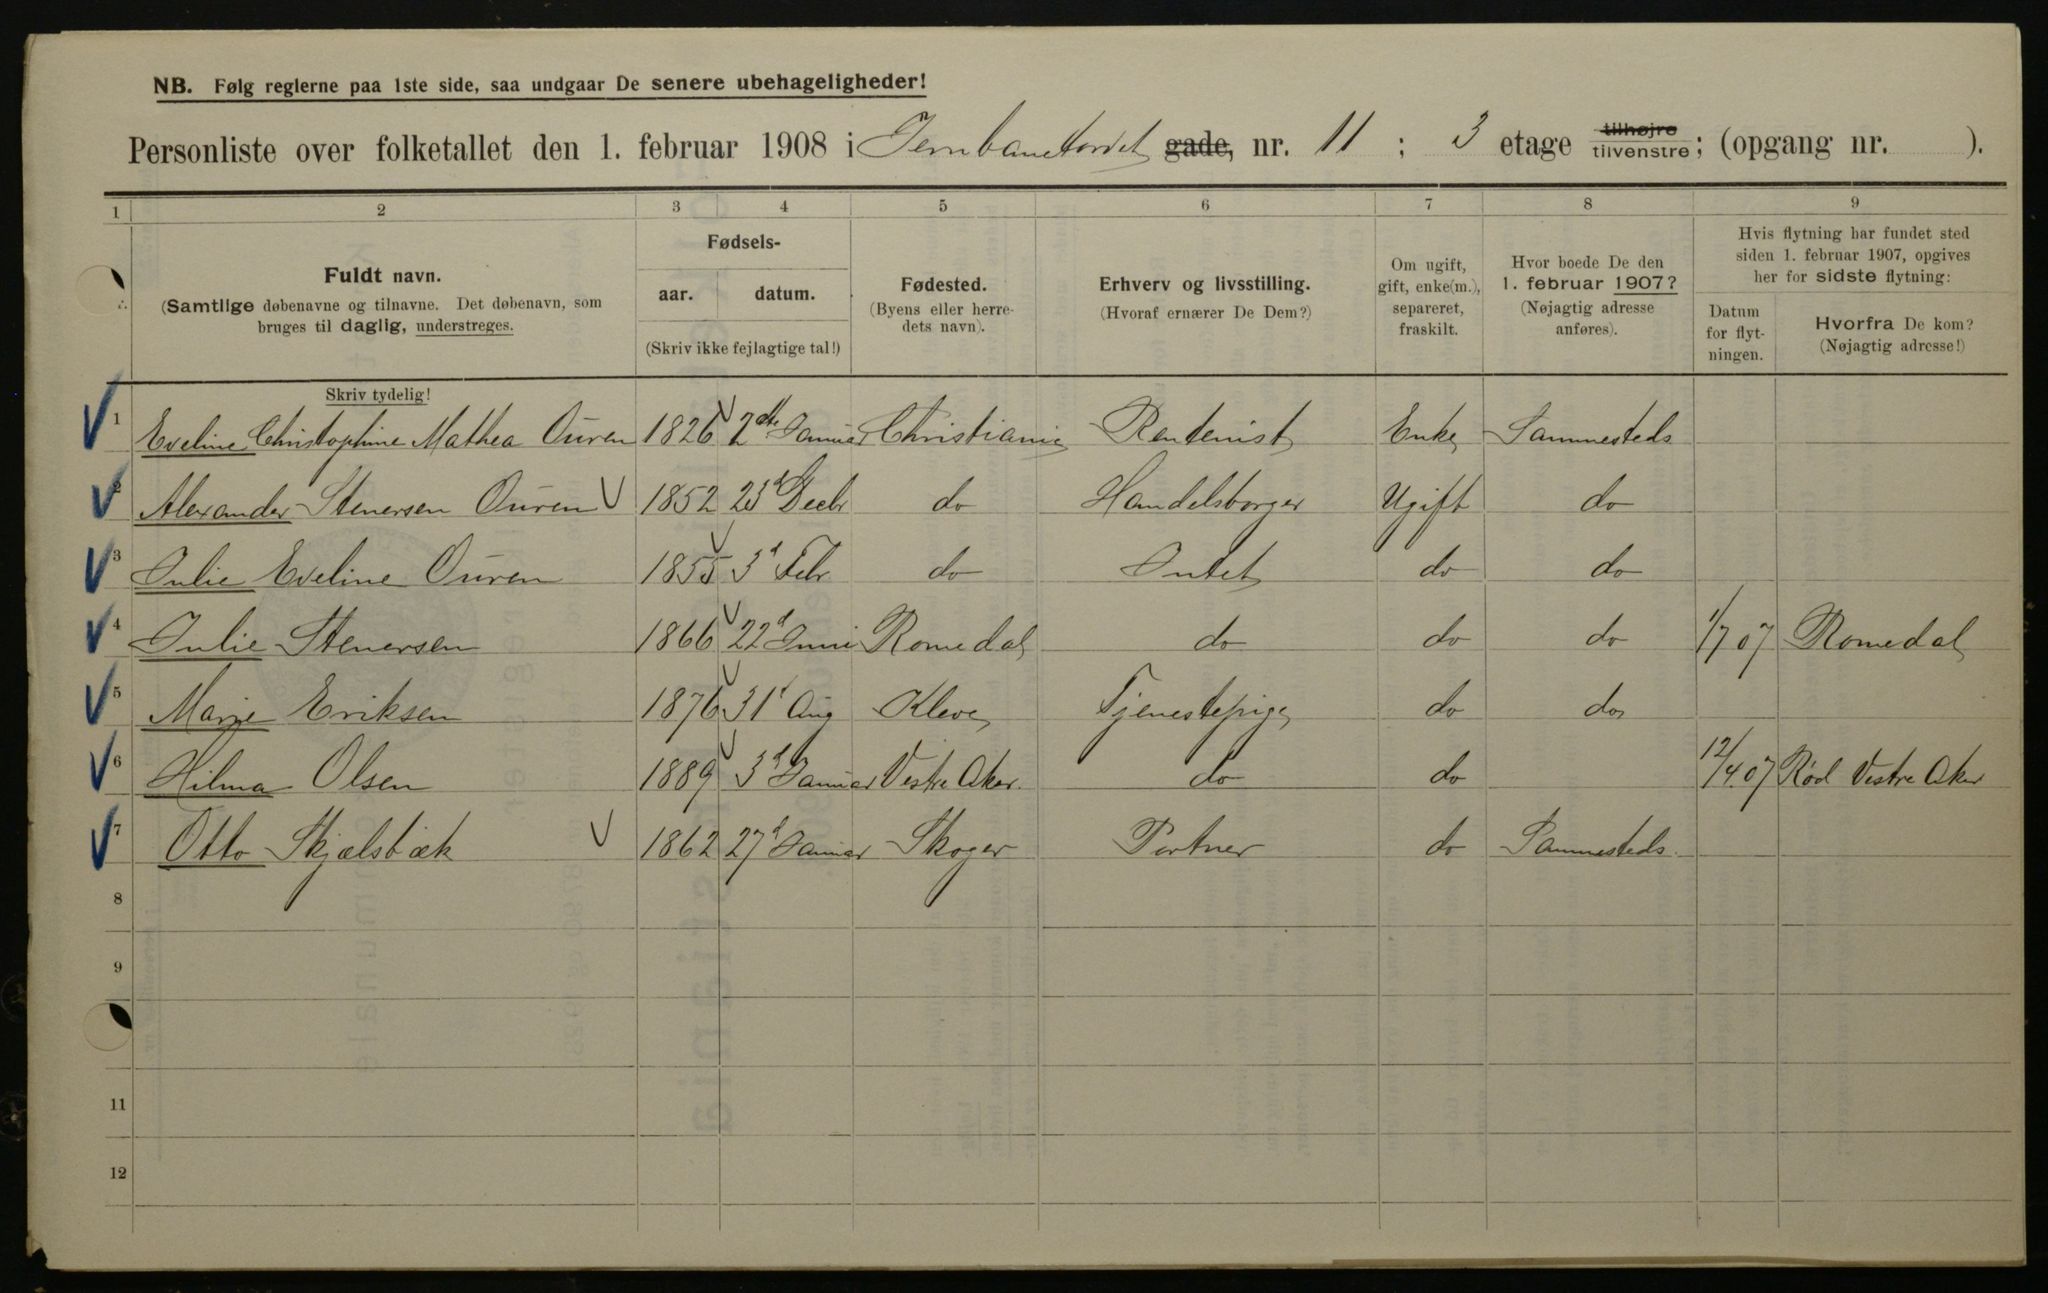 NB. Følg reglerne paa 1ste side, saa undgaar De senere ubehageligheder!
Personliste over folketallet den 1. februar 1908 i Jernbanetorvet gade, nr. 11 ; 3 etage tilhøjre tilvenstre; (opgang nr. ).
1 2 3 4 5 6 7 8 9
Fuldt navn.
(Samtlige døbenavne og tilnavne. Det døbenavn, som
bruges til daglig, understreges.
Fødsels-
aar. datum.
(Skriv ikke fejlagtige tal!)
Fødested.
(Byens eller herre-
dets navn).
Erhverv og livsstilling.
(Hvoraf ernærer De Dem?)
Om ugift,
gift, enke(m.),
separeret,
fraskilt.
Hvor boede De den
1. februar 1907?
(Nøjagtig adresse
anføres).
Hvis flytning har fundet sted
siden 1. februar 1907, opgives
her for sidste flytning:
Datum
for flyt-
ningen.
Hvorfra De kom?
(Nøjagtig adresse!)
Skriv tydelig!
1 Eveline Christophine Mathea Ouren 1826 2de Januar Christiania Rentenist Enke Sammesteds
2 Alexander Stenersen Ouren 1852 23d Decbr do Handelsborger Ugift do
3 Julie Eveline Ouren 1855 3d Febr do Intet do do
4 Julie Stenersen 1866 22d Juni Romedal do do do 1/7 07 Romedal
5 Marje Eriksen 1876 31d Aug Kleve Tjenestepige do do
6 Hilma Olsen 1889 3d Januar Vestre Aker. do do 12/4.07 Rød Vestre Aker
7 Otto Skjælsbæk 1862 27d Januar Skoger Portner do Sammesteds.
8
9
11
12